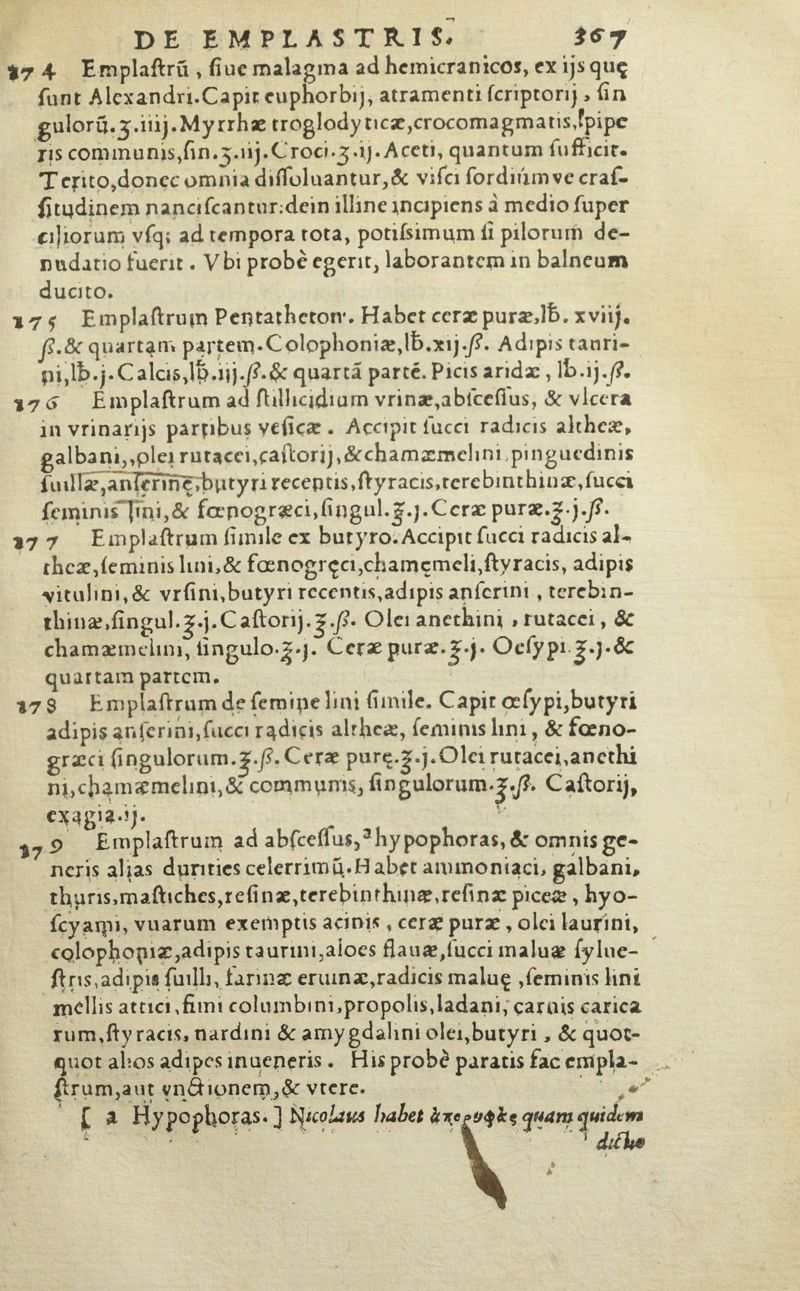 DE EMPLASTRIS. 367
274 Emplaſtrũ, ſiue malagma ad hemicranicos, ex ijs quę
ſunt Alexandri. Capit euphorbij, atramenti ſcriptorij, ſin
gulorũ.ʒ.iiij. Myrrhæ troglodyticæ, crocomagmatis, pipe
ris communis, ſin.ʒ.iij. Croci.ʒ.ij. Aceti, quantum ſufficit.
Terito, donec omnia diſſoluantur, & viſci ſordiúmve craſ-
ſitudinem nanciſcantur: dein illine incipiens à medio ſuper
ciliorum vſq; ad tempora tota, potiſsimum ſi pilorum de-
nudatio fuerit. Vbi probè egerit, laborantem in balneum
ducito.
275 Emplaſtrum Pentatheton. Habet ceræ puræ, ℔. xviij.
ß. & quartam partem. Colophoniæ, ℔.xij.ß. Adipis tauri-
ni, ℔.j. Calcis, ℔.iij.ß. & quartã partẽ. Picis aridæ, ℔.ij.ß.
276 Emplaſtrum ad ſtillicidium vrinæ, abſceſſus, & vlcera
in vrinarijs partibus veſicæ. Accipit ſucci radicis altheæ,
galbani, olei rutacei, caſtorij, & chamæmelini, pinguedinis
ſuillæ, anſerinę, butyri recentis, ſtyracis, terebinthinæ, ſucci
ſeminis lini, & fœnogræci, ſingul.℥.j. Ceræ puræ.℥.j.ß.
277 Emplaſtrum ſimile ex butyro. Accipit ſucci radicis al-
theæ, ſeminis lini, & fœnogręci, chamęmeli, ſtyracis, adipis
vitulini, & vrſini, butyri recentis, adipis anſerini, terebin-
thinæ, ſingul.℥.j. Caſtorij.℥.ß. Olei anethini, rutacei, &
chamæmelini, ſingulo.℥.j. Ceræ puræ.℥.j. Oeſypi.℥.j. &
quartam partem.
278 Emplaſtrum de ſemine lini ſimile. Capit œſypi, butyri
adipis anſerini, ſucci radicis altheæ, ſeminis lini, & fœno-
græci ſingulorum.℥.ß. Ceræ purę.℥.j. Olei rutacei, anethi
ni, chamæmelini, & communis, ſingulorum.℥.ß. Caſtorij,
exagia.ij.
279 Emplaſtrum ad abſceſſus, ᵃhypophoras, & omnis ge-
neris alias durities celerrimũ. Habet ammoniaci, galbani,
thuris, maſtiches, reſinæ, terebinthinæ, reſinæ piceæ, hyo-
ſcyami, vuarum exemptis acinis, ceræ puræ, olei laurini,
colophoniæ, adipis taurini, aloes flauæ, ſucci maluæ ſylue-
ſtris, adipis ſuilli, farinæ eruinæ, radicis maluę, ſeminis lini
mellis attici, fimi columbini, propolis, ladani, carnis carica
rum, ſtyracis, nardini & amygdalini olei, butyri, & quot-
quot alios adipes inueneris. His probè paratis fac empla-
ſtrum, aut vnctionem, & vtere.
[ a Hypophoras. ] Nicolaus habet quam quidem
dictio